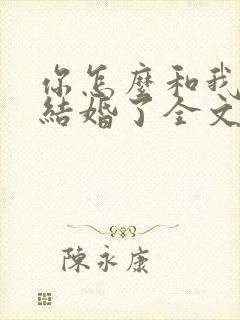 你怎麼和我
結婚了全文
陳永康